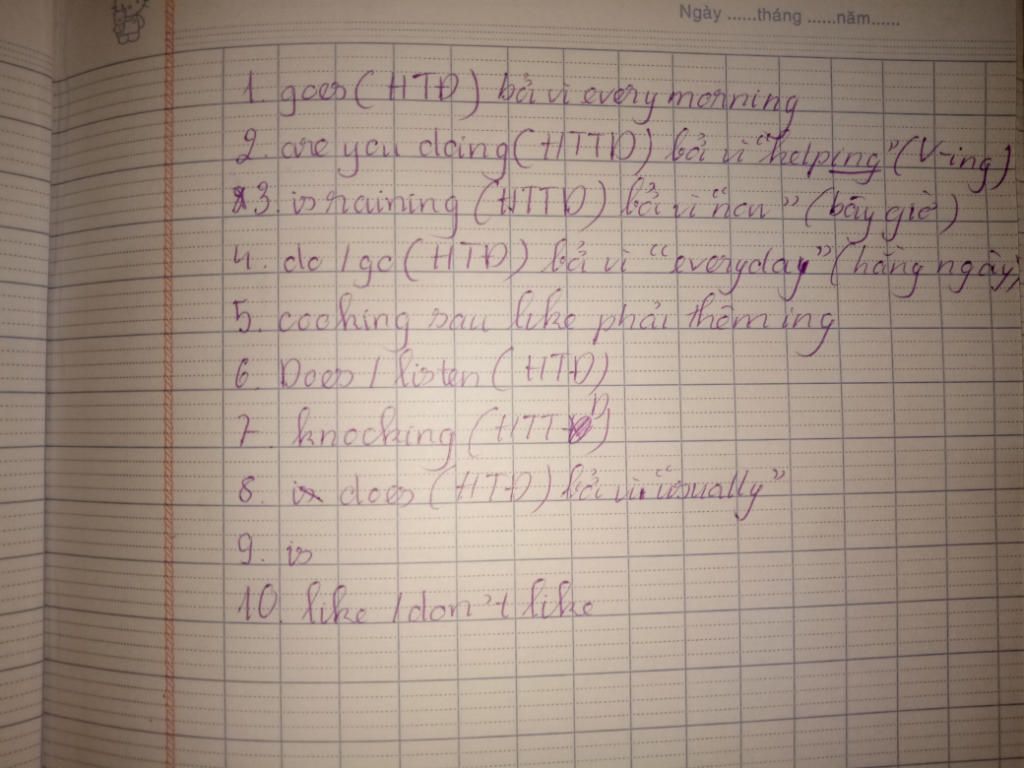 Ngày ......tháng ......năm......
1. goes (HTĐ) bởi vì every morning
2. are you doing (HTTD) bởi vì "helping" (V-ing)
3 is raining (HTTD) bởi vì "now" (bây giờ)
4. do / go (HTĐ) bởi vì "everyday" (hàng ngày)
5. cooking sau like phải thêm ing
6. Does / listen (HTĐ)
7. knocking (HTTD)
8. does (HTĐ) bởi vì "usually"
9. is
10 like / don't like